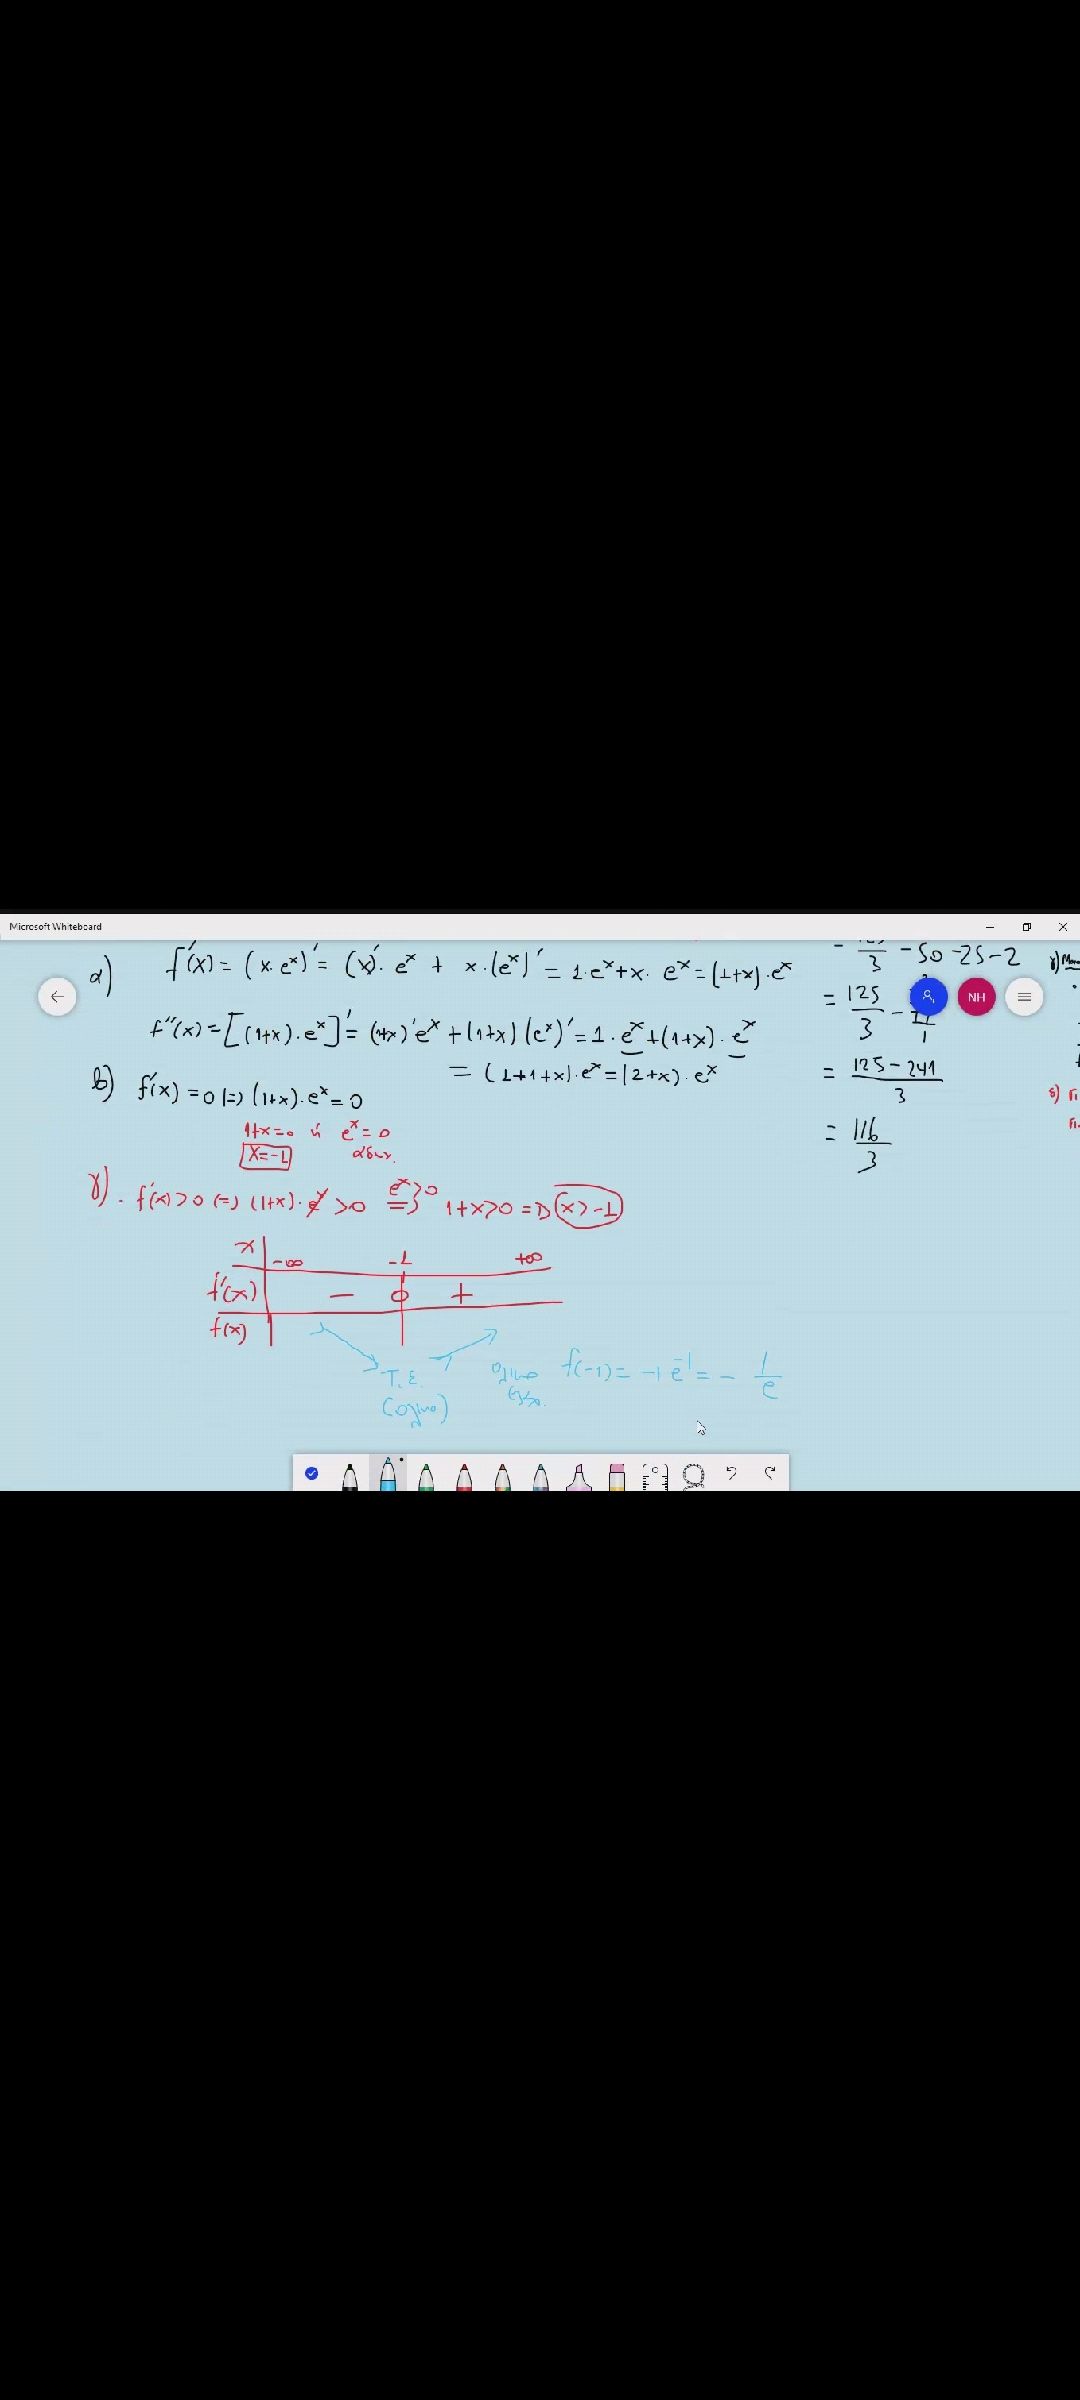 Microsoft Whiteboard
α) f'(x) = (x·eˣ)' = (x)'·eˣ + x·(eˣ)' = 1·eˣ+x·eˣ = (1+x)·eˣ
f''(x) = [(1+x)·eˣ]' = (1+x)'eˣ + (1+x)(eˣ)' = 1·eˣ+(1+x)·eˣ
= (1+1+x)·eˣ = (2+x)·eˣ
β) f'(x) = 0 (=) (1+x)·eˣ = 0
1+x=0 ή eˣ=0
x=-1 αδυν.
γ). f'(x) > 0 (=) (1+x)·eˣ > 0 eˣ>0 => 1+x>0 => x>-1
x -∞ -1 +∞
f'(x) - 0 +
f(x)
T.E.
(ολικο)
ολικο f(-1) = -1 e⁻¹ = - 1/e
3 - 50 - 25 - 2
= 125/3 -
= 125 - 241 / 3
= 116/3
NH
γ)
δ)